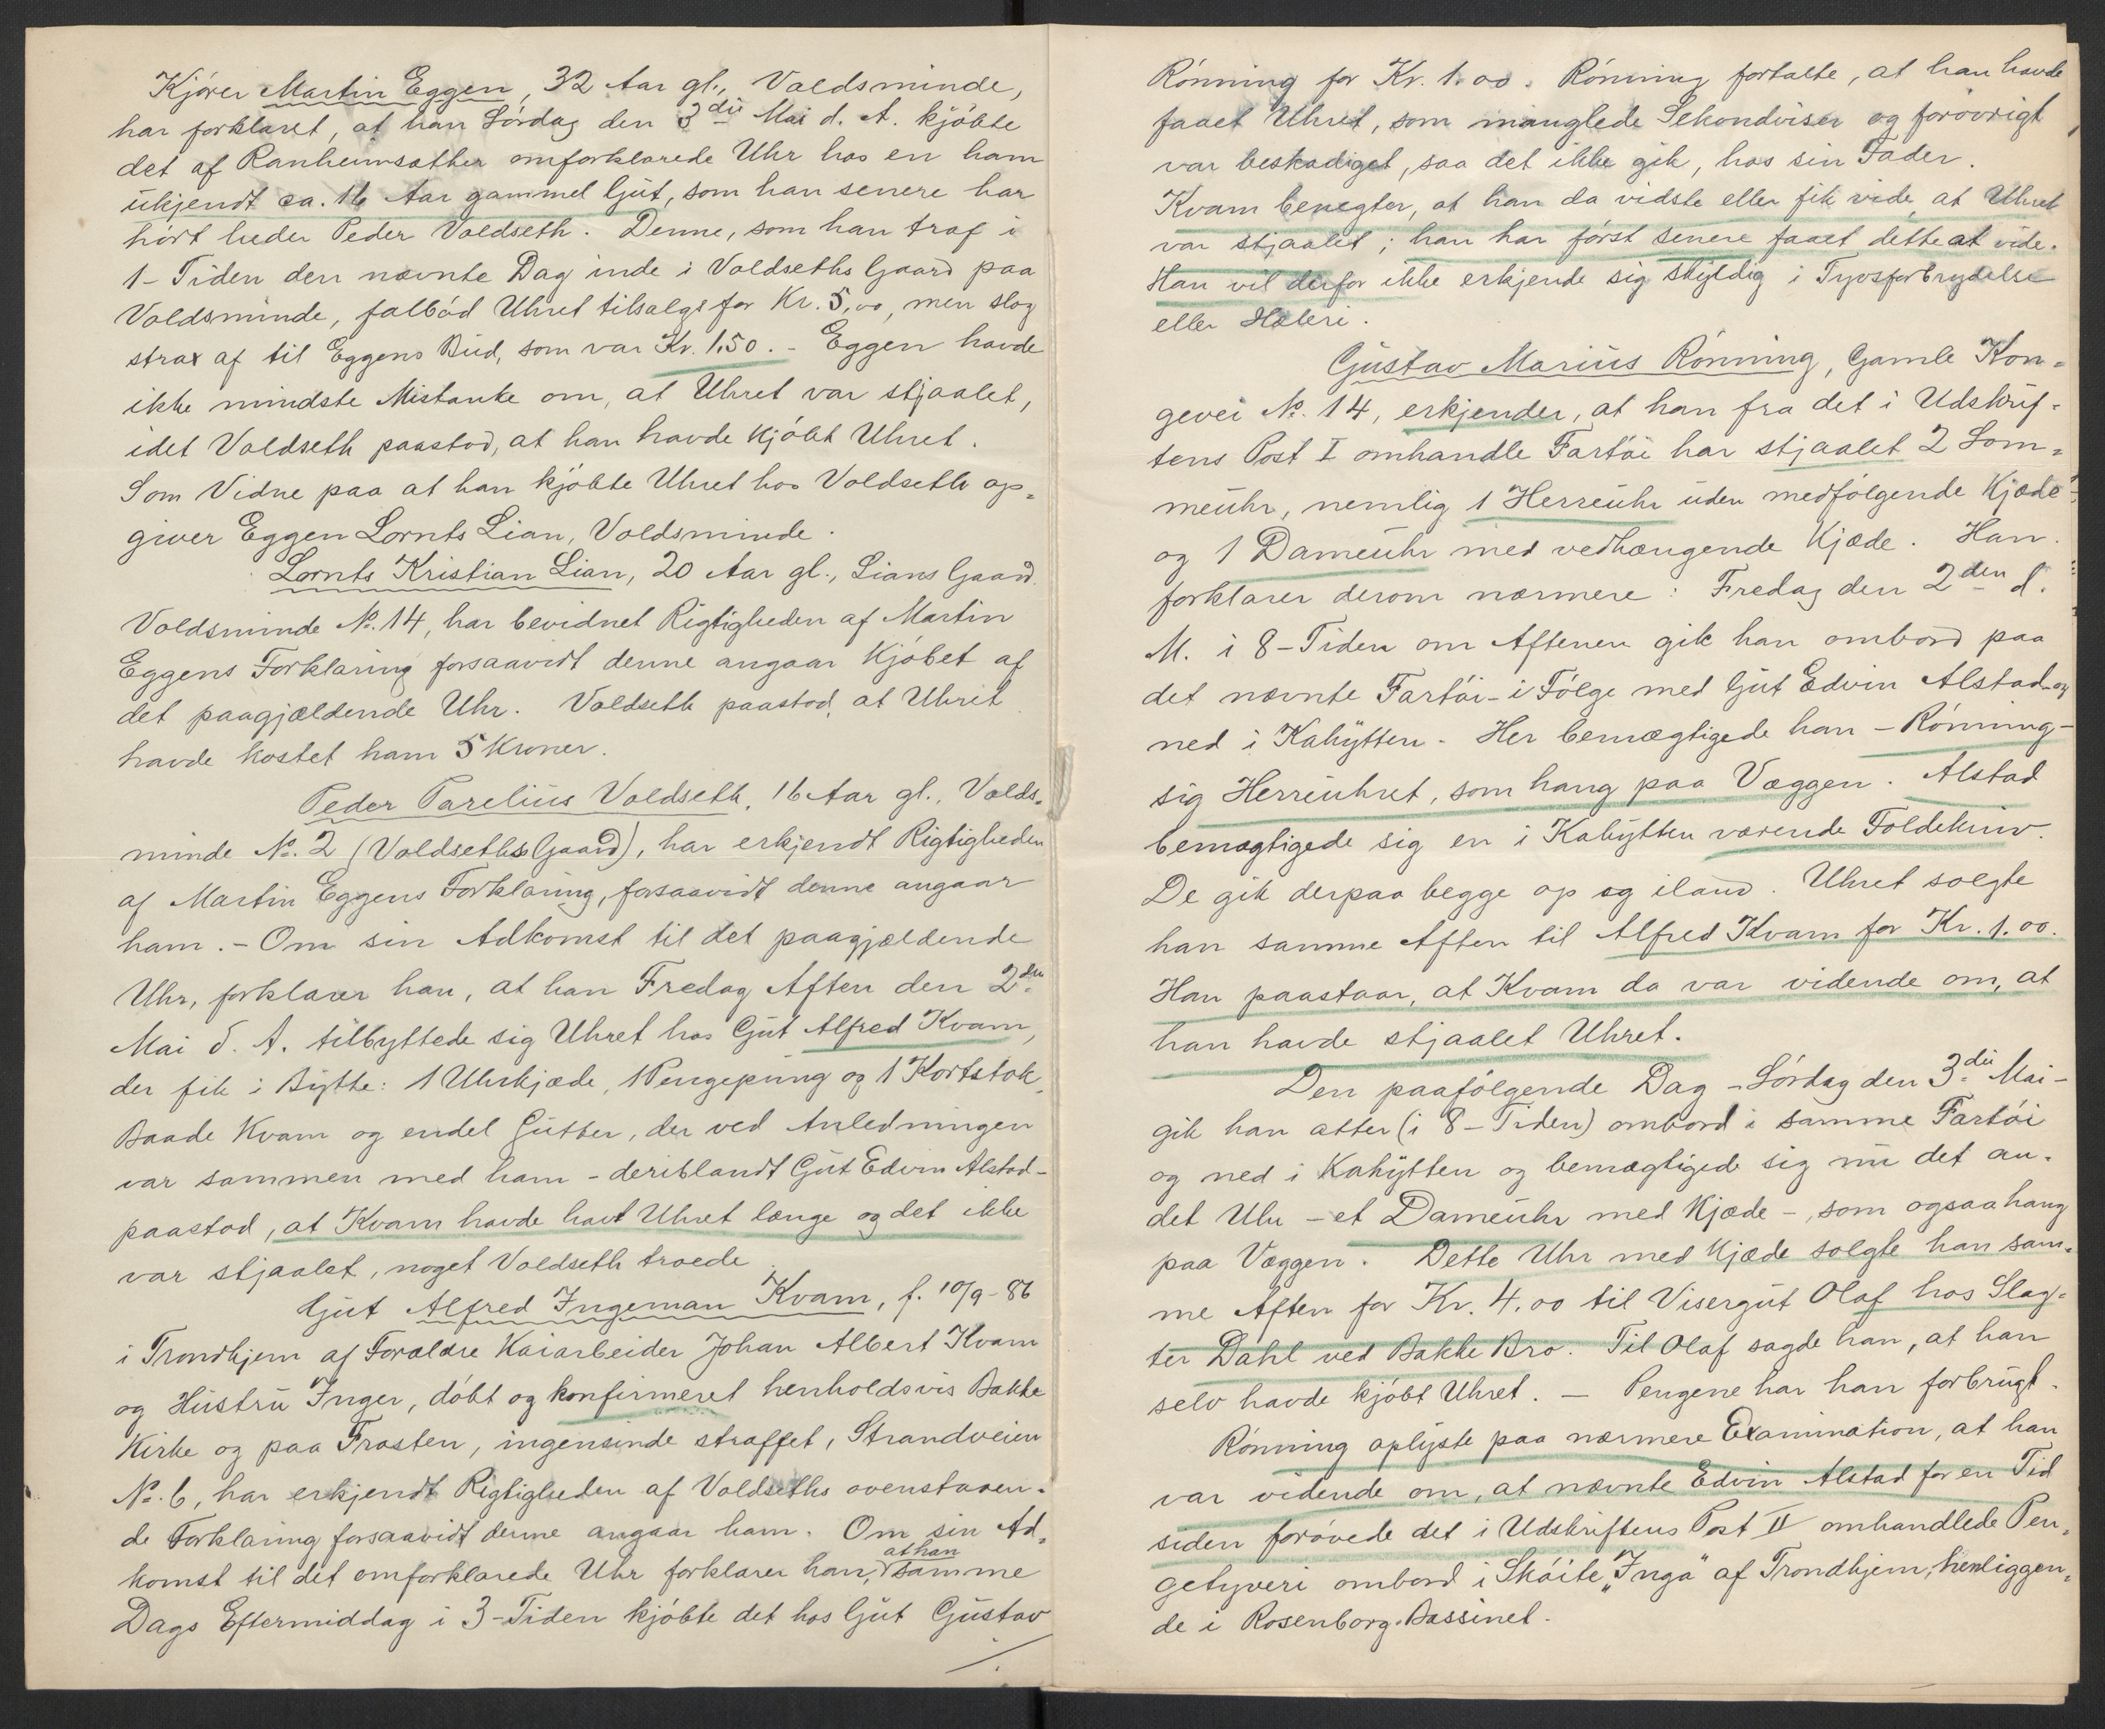 Kjører Martin Eggen, 32 Aar gl., Voldsminde,
har forklaret, at han Lørdag den 3die Mai d. A. kjøbte
det af Ranheimsæther omforklarede Uhr hos en ham
ukjendt ca. 16 Aar gammel Gut, som han senere har
hørt heder Peder Voldseth. Denne, som han traf i
1-Tiden den nævnte Dag inde i Voldseths Gaard paa
Voldsminde, falbød Uhret tilsalgs for Kr. 5,00, men slog
strax af til Eggens Bud, som var Kr. 1.50. - Eggen havde
ikke mindste Mistanke om, at Uhret var stjaalet,
idet Voldseth paastod, at han havde kjøbt Uhret.
Som Vidne paa at han kjøbte Uhret hos Voldseth op-
giver Eggen Lornts Lian, Voldsminde.
Lornts Kristian Lian, 20 Aar gl., Lians Gaard
Voldsminde No. 14, har bevidnet Rigtigheden af Martin
Eggens Forklaring forsaavidt denne angaar Kjøbet af
det paagjældende Uhr. Voldseth paastod, at Uhret
havde kostet ham 5 Kroner.
Peder Parelius Voldseth, 16 Aar gl., Volds-
minde No. 2 (Voldseths Gaard), har erkjendt Rigtigheden
af Martin Eggens Forklaring, forsaavidt denne angaar
ham. - Om sin Adkomst til det paagjældende
Uhr, forklarer han, at han Fredag Aften den 2den
Mai d. A. tilbyttede sig Uhret hos Gut Alfred Kvam,
der fik i Bytte: 1 Uhrkjæde, 1 Pengepung og 1 Kortstok.
Baade Kvam og endel Gutter, der ved Anledningen
var sammen med ham - deriblandt Gut Edvin Alstad -
paastod, at Kvam havde havt Uhret længe og det ikke
var stjaalet, noget Voldseth troede.
Gut Alfred Ingeman Kvam, f. 10/9-86
i Trondhjem af Forældre Kaiarbeider Johan Albert Kvam
og Hustru Inger, døbt og konfirmeret henholdsvis Bakke
Kirke og paa Frosten, ingensinde straffet, Strandveien
No. 6, har erkjendt Rigtigheden af Voldseths ovenstaaen-
de Forklaring forsaavidt denne angaar ham. Om sin Ad-
komst til det omforklarede Uhr forklarer han, at han samme
Dags Eftermiddag i 3-Tiden kjøbte det hos Gut Gustav
./.
Rønning for Kr. 1.00. Rønning fortalte, at han havde
faaet Uhret, som manglede Sekondviser og forøvrigt
var beskadiget, saa det ikke gik, hos sin Fader.
Kvam benegter, at han da vidste eller fik vide, at Uhret
var stjaalet; han har først senere faaet dette at vide.
Han vil derfor ikke erkjende sig skyldig i Tyvsforbrydelse
eller Hæleri.
Gustav Marius Rønning, Gamle Kon-
gevei No. 14, erkjender, at han fra det i Udskrif-
tens Post I omhandle Fartøi har stjaalet 2 Lom-
meuhr, nemlig 1 Herreuhr uden medfølgende Kjæde
og 1 Dameuhr med vedhængende Kjæde. Han
forklarer derom nærmere: Fredag den 2den d.
M. i 8-Tiden om Aftenen gik han ombord paa
det nævnte Fartøi - i Følge med Gut Edvin Alstad - og
ned i Kahytten. Her bemægtigede han - Rønning -
sig Herreuhret, som hang paa Væggen. Alstad
bemægtigede sig en i Kahytten værende Foldekniv.
De gik derpaa begge op og iland. Uhret solgte
han samme Aften til Alfred Kvam for Kr. 1.00.
Han paastaar, at Kvam da var vidende om, at
han havde stjaalet Uhret.
Den paafølgende Dag - Lørdag den 3die Mai -
gik han atter (i 8-Tiden) ombord i samme Fartøi
og ned i Kahytten og bemægtigede sig nu det an-
det Uhr - et Dameuhr med Kjæde -, som ogsaa hang
paa Væggen. Dette Uhr med Kjæde solgte han sam-
me Aften for Kr. 4.00 til Visergut Olaf hos Slag-
ter Dahl ved Bakke Bro. Til Olaf sagde han, at han
selv havde kjøbt Uhret. - Pengene har han forbrugt.
Rønning oplyste paa nærmere Examination, at han
var vidende om, at nævnte Edvin Alstad for en Tid
siden forøvede det i Udskriftens Post II omhandlede Pen-
getyveri ombord i Skøite "Inga" af Trondhjem, henliggen-
de i Rosenborg Bassinet.